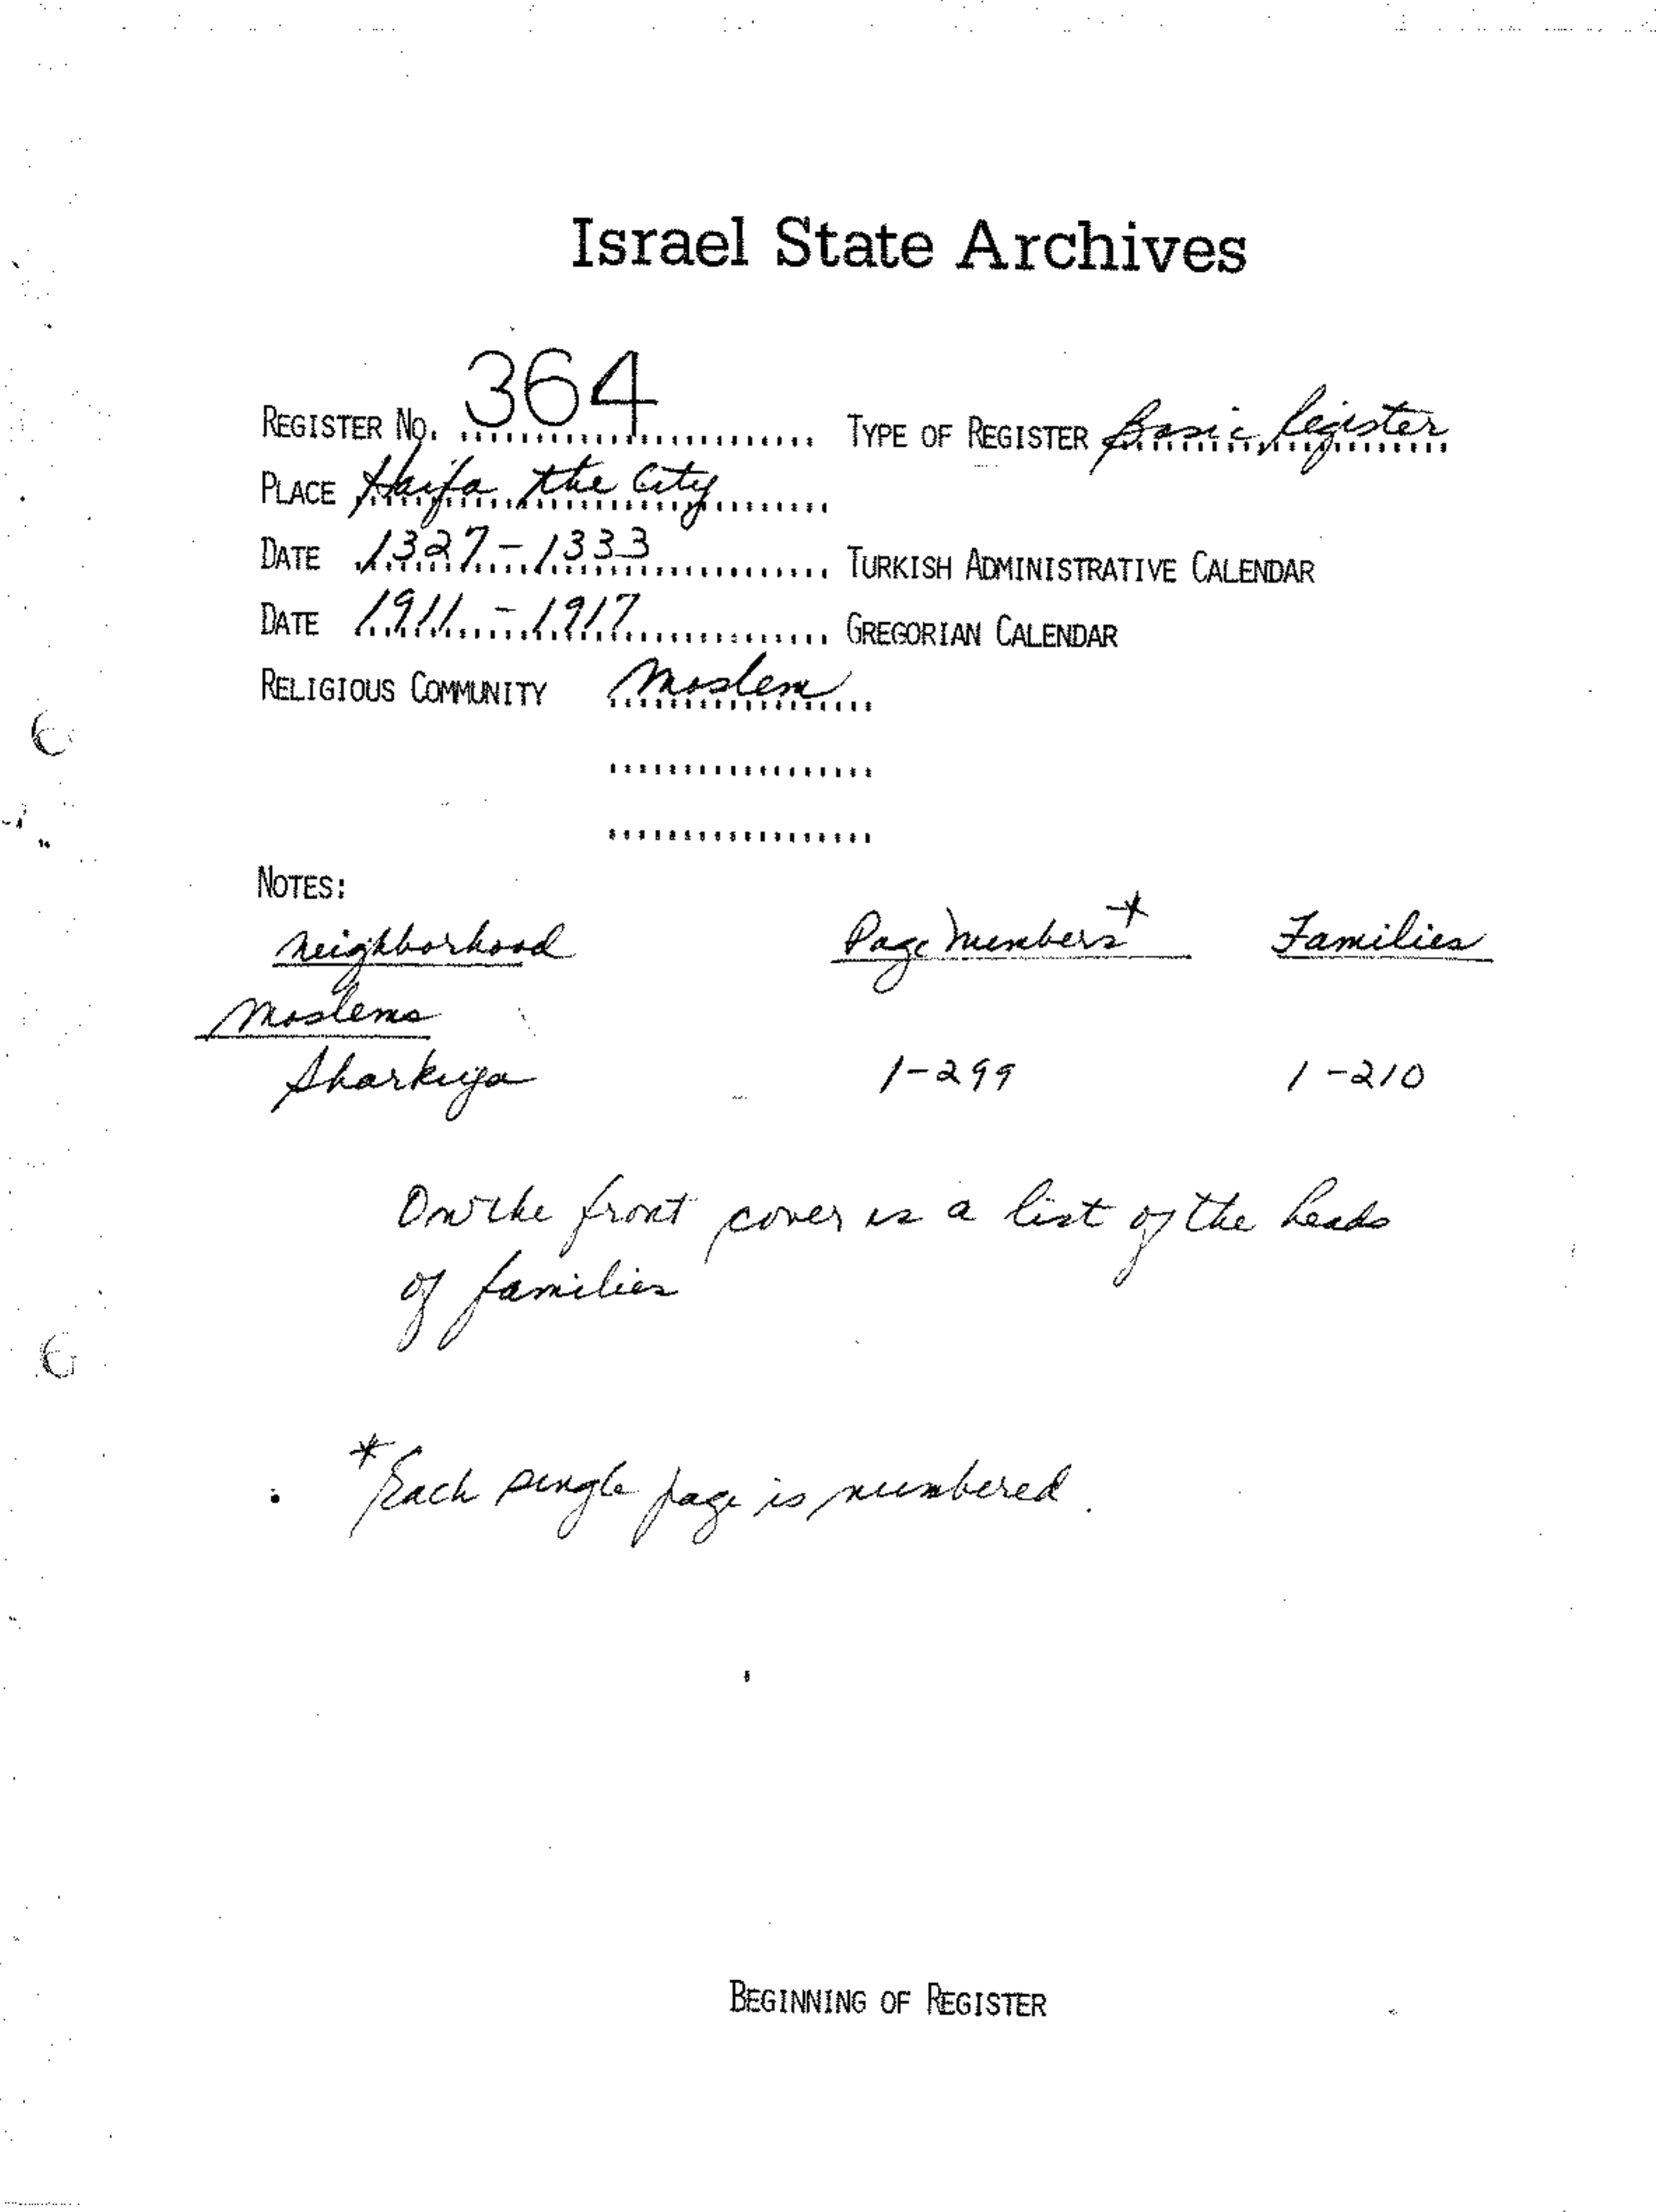 Israel State Archives
REGISTER NO. 364 TYPE OF REGISTER Basic Register
PLACE Haifa the City
DATE 1327-1333 TURKISH ADMINISTRATIVE CALENDAR
DATE 1911-1917 GREGORIAN CALENDAR
RELIGIOUS COMMUNITY Moslem
NOTES:
Neighborhood Page Numbers* Families
Moslems
Sharkiya 1-299 1-210
On the front cover is a list of the heads
of families
* Each single page is numbered.
BEGINNING OF REGISTER